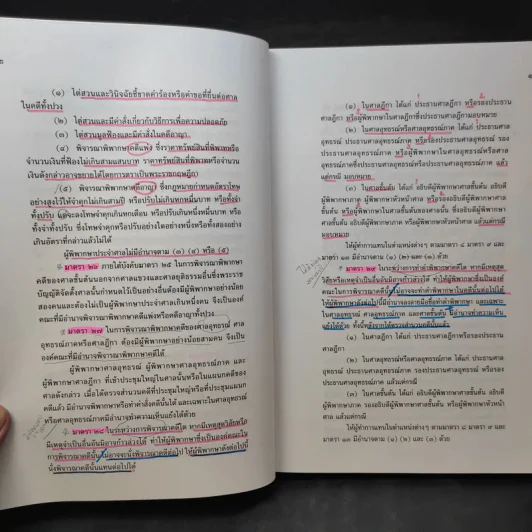 (๑) ไต่สวนและวินิจฉัยชี้ขาดคำร้องหรือคำขอที่ยื่นต่อศาล
ในคดีทั้งปวง
(๒) ไต่สวนและมีคำสั่งเกี่ยวกับวิธีการเพื่อความปลอดภัย
(๓) ไต่สวนมูลฟ้องและมีคำสั่งในคดีอาญา
(๔) พิจารณาพิพากษาคดีแพ่ง ซึ่งราคาทรัพย์สินที่พิพาทหรือ
จำนวนเงินที่ฟ้องไม่เกินสามแสนบาท ราคาทรัพย์สินที่พิพาทหรือจำนวน
เงินดังกล่าวอาจขยายได้โดยการตราเป็นพระราชกฤษฎีกา
(๕) พิจารณาพิพากษาคดีอาญา ซึ่งกฎหมายกำหนดอัตราโทษ
อย่างสูงไว้ให้จำคุกไม่เกินสามปี หรือปรับไม่เกินหกหมื่นบาท หรือทั้งจำ
ทั้งปรับ แต่จะลงโทษจำคุกเกินหกเดือน หรือปรับเกินหนึ่งหมื่นบาท หรือ
ทั้งจำทั้งปรับ ซึ่งโทษจำคุกหรือปรับอย่างใดอย่างหนึ่งหรือทั้งสองอย่าง
เกินอัตราที่กล่าวแล้วไม่ได้
ผู้พิพากษาประจำศาลไม่มีอำนาจตาม (๓) (๔) หรือ (๕)
มาตรา ๒๖ ภายใต้บังคับมาตรา ๒๕ ในการพิจารณาพิพากษา
คดีของศาลชั้นต้นนอกจากศาลแขวงและศาลยุติธรรมอื่นซึ่งพระราช
บัญญัติจัดตั้งศาลนั้นกำหนดไว้เป็นอย่างอื่นต้องมีผู้พิพากษาอย่างน้อย
สองคนและต้องไม่เป็นผู้พิพากษาประจำศาลเกินหนึ่งคน จึงเป็นองค์
คณะที่มีอำนาจพิจารณาพิพากษาคดีแพ่งหรือคดีอาญาทั้งปวง
มาตรา ๒๗ ในการพิจารณาพิพากษาคดีของศาลอุทธรณ์ ศาล
อุทธรณ์ภาคหรือศาลฎีกา ต้องมีผู้พิพากษาอย่างน้อยสามคน จึงเป็น
องค์คณะที่มีอำนาจพิจารณาพิพากษาคดีได้
ผู้พิพากษาศาลอุทธรณ์ ผู้พิพากษาศาลอุทธรณ์ภาค และ
ผู้พิพากษาศาลฎีกา ที่เข้าประชุมใหญ่ในศาลนั้นหรือในแผนกคดีของ
ศาลดังกล่าว เมื่อได้ตรวจสำนวนคดีที่ประชุมใหญ่หรือที่ประชุมแผนก
คดีแล้ว มีอำนาจพิพากษาหรือทำคำสั่งคดีนั้นได้ และเฉพาะในศาลอุทธรณ์
หรือศาลอุทธรณ์ภาคมีอำนาจทำความเห็นแย้งได้ด้วย
มาตรา ๒๘ ในระหว่างการพิจารณาคดีใด หากมีเหตุสุดวิสัยหรือ
มีเหตุจำเป็นอื่นอันมิอาจก้าวล่วงได้ ทำให้ผู้พิพากษาซึ่งเป็นองค์คณะใน
การพิจารณาคดีนั้น ไม่อาจจะนั่งพิจารณาคดีต่อไป ให้ผู้พิพากษาดังต่อไปนี้
นั่งพิจารณาคดีนั้นแทนต่อไปได้
(๑) ในศาลฎีกา ได้แก่ ประธานศาลฎีกา หรือรองประธาน
ศาลฎีกา หรือผู้พิพากษาในศาลฎีกาซึ่งประธานศาลฎีกามอบหมาย
(๒) ในศาลอุทธรณ์หรือศาลอุทธรณ์ภาค ได้แก่ ประธานศาล
อุทธรณ์ ประธานศาลอุทธรณ์ภาค หรือรองประธานศาลอุทธรณ์ รอง
ประธานศาลอุทธรณ์ภาค หรือผู้พิพากษาในศาลอุทธรณ์หรือศาลอุทธรณ์
ภาคซึ่งประธานศาลอุทธรณ์หรือประธานศาลอุทธรณ์ภาค แล้ว
แต่กรณี มอบหมาย
(๓) ในศาลชั้นต้น ได้แก่ อธิบดีผู้พิพากษาศาลชั้นต้น อธิบดี
ผู้พิพากษาภาค ผู้พิพากษาหัวหน้าศาล หรือรองอธิบดีผู้พิพากษาศาลชั้น
ต้น หรือผู้พิพากษาในศาลชั้นต้นของศาลนั้น ซึ่งอธิบดีผู้พิพากษา
ศาลชั้นต้น อธิบดีผู้พิพากษาภาค หรือผู้พิพากษาหัวหน้าศาล แล้วแต่กรณี
มอบหมาย
ให้ผู้ทำการแทนในตำแหน่งต่างๆ ตามมาตรา ๘ มาตรา ๙
และมาตรา ๑๓ มีอำนาจตาม (๑) (๒) และ (๓) ด้วย
มาตรา ๒๙ ในระหว่างการทำคำพิพากษาคดีใด หากมีเหตุสุด
วิสัยหรือเหตุจำเป็นอื่นอันมิอาจก้าวล่วงได้ ทำให้ผู้พิพากษาซึ่งเป็นองค์
คณะในการพิจารณาคดีนั้นไม่อาจจะทำคำพิพากษาในคดีนั้นต่อไปได้
ให้ผู้พิพากษาดังต่อไปนี้มีอำนาจลงลายมือชื่อทำคำพิพากษา และเฉพาะ
ในศาลอุทธรณ์ ศาลอุทธรณ์ภาค และศาลชั้นต้น มีอำนาจทำความเห็น
แย้งได้ด้วย ทั้งนี้หลังจากได้ตรวจสำนวนคดีนั้นแล้ว
(๑) ในศาลฎีกา ได้แก่ ประธานศาลฎีกาหรือรองประธาน
ศาลฎีกา
(๒) ในศาลอุทธรณ์หรือศาลอุทธรณ์ภาค ได้แก่ ประธานศาล
อุทธรณ์ ประธานศาลอุทธรณ์ภาค รองประธานศาลอุทธรณ์ หรือรอง
ประธานศาลอุทธรณ์ภาค แล้วแต่กรณี
(๓) ในศาลชั้นต้น ได้แก่ อธิบดีผู้พิพากษาศาลชั้นต้น อธิบดี
ผู้พิพากษาภาค รองอธิบดีผู้พิพากษาศาลชั้นต้น หรือผู้พิพากษาหัวหน้า
ศาล แล้วแต่กรณี
ให้ผู้ทำการแทนในตำแหน่งต่างๆ ตามมาตรา ๘ มาตรา ๙ และ
มาตรา ๑๓ มีอำนาจตาม (๑) (๒) และ (๓) ด้วย